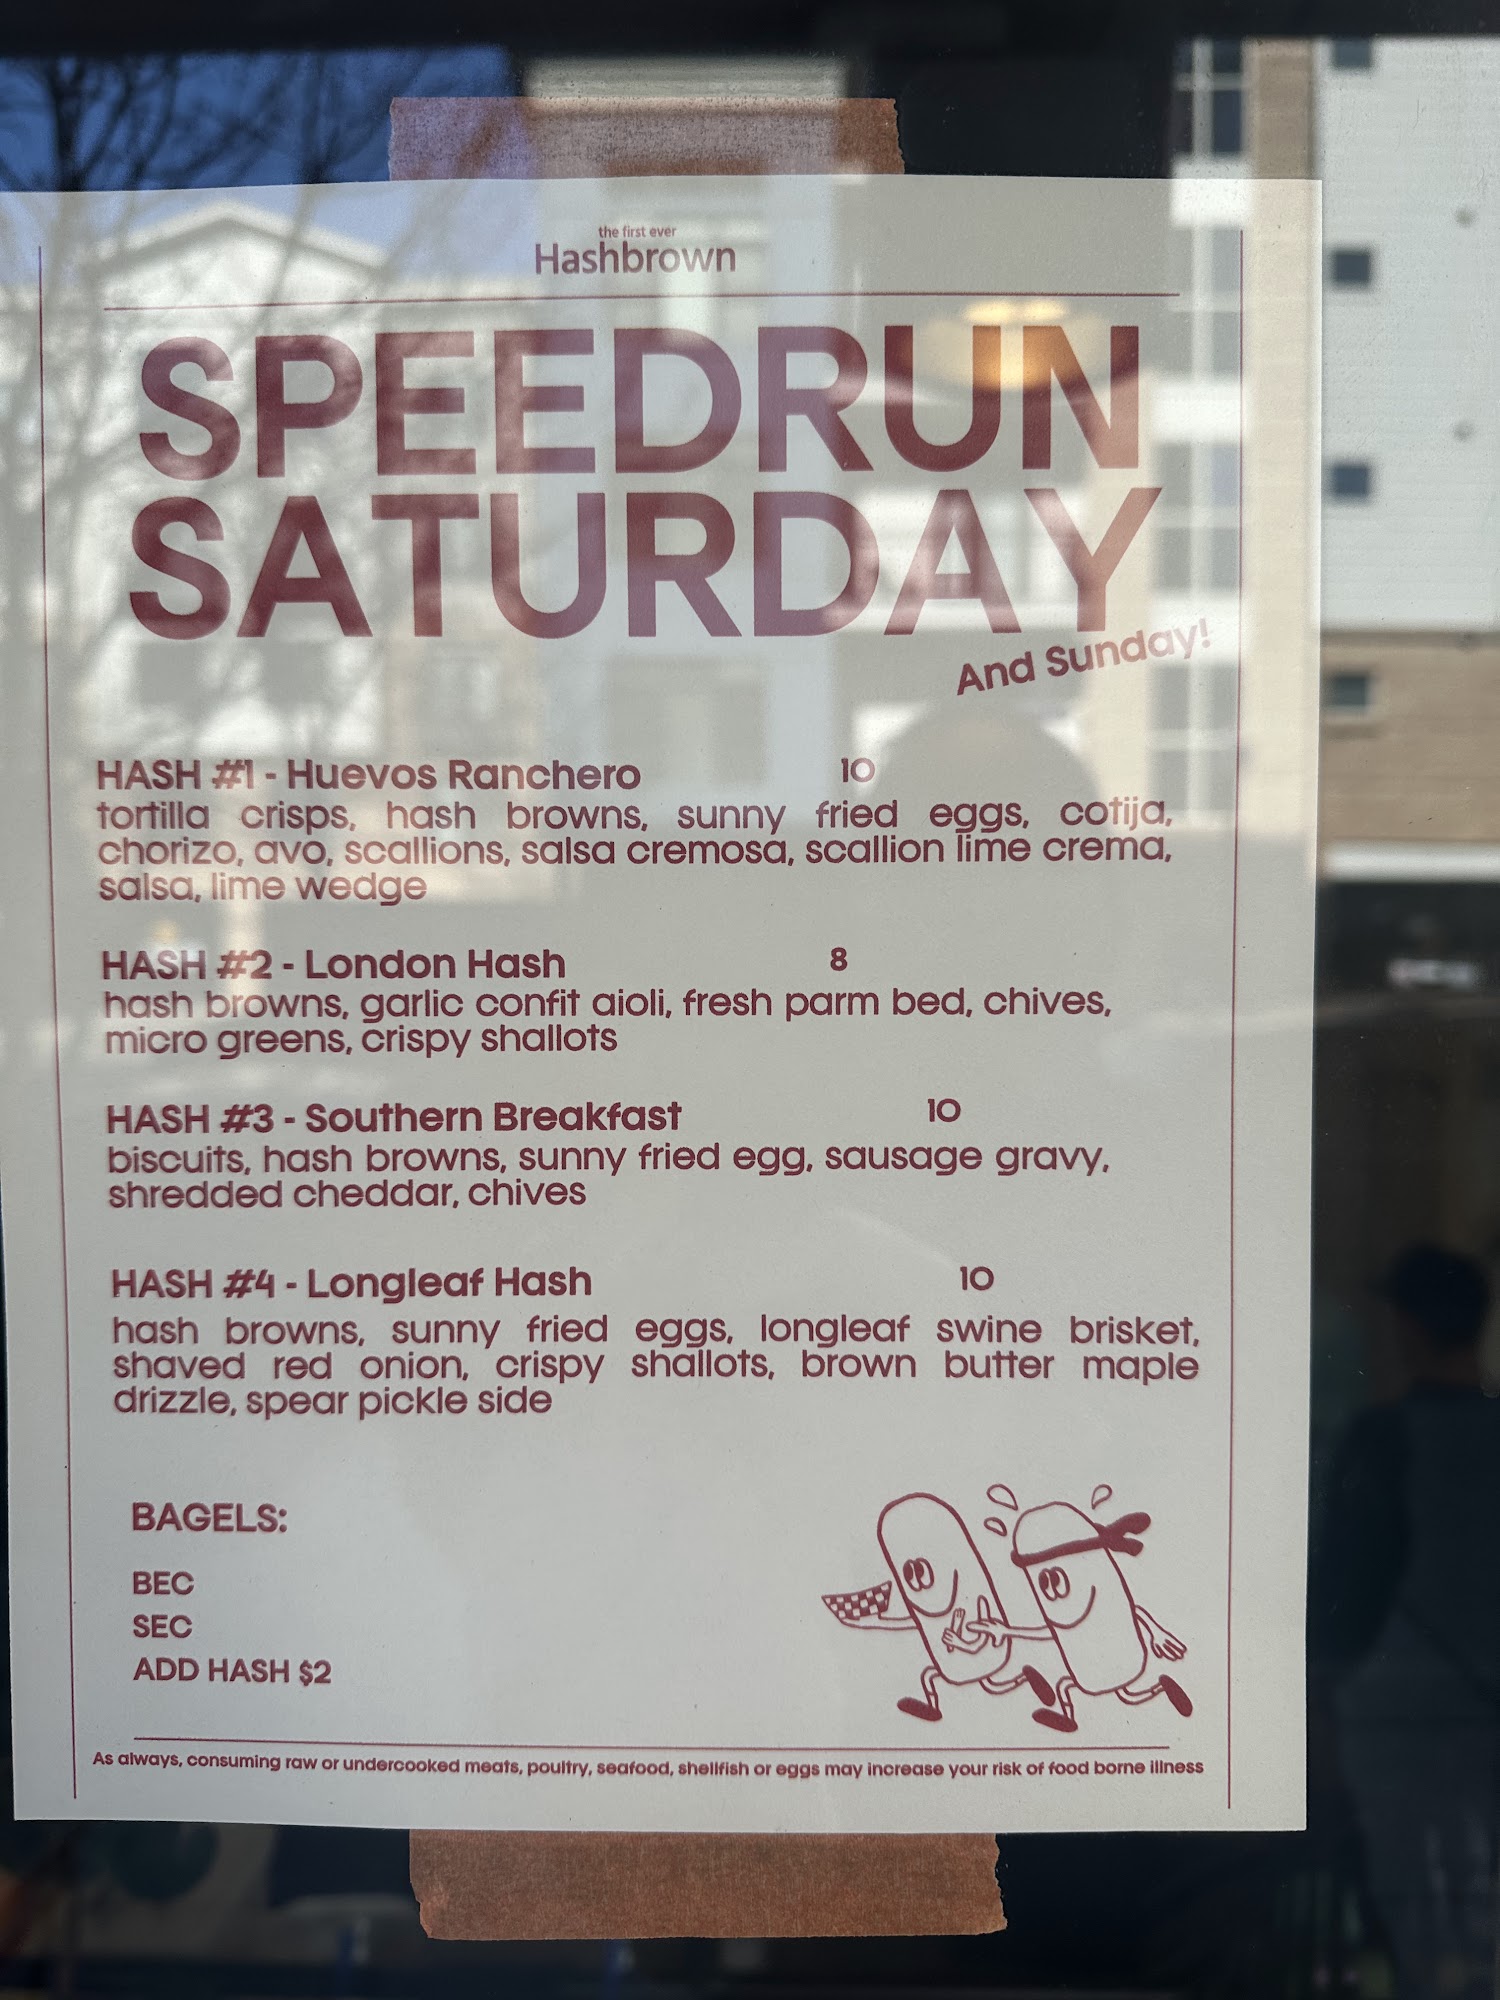 the first ever
Hashbrown
SPEEDRUN
SATURDAY
And Sunday!
HASH #1 - Huevos Ranchero 10
tortilla crisps, hash browns, sunny fried eggs, cotija,
chorizo, avo, scallions, salsa cremosa, scallion lime crema,
salsa, lime wedge
HASH #2 - London Hash 8
hash browns, garlic confit aioli, fresh parm bed, chives,
micro greens, crispy shallots
HASH #3 - Southern Breakfast 10
biscuits, hash browns, sunny fried egg, sausage gravy,
shredded cheddar, chives
HASH #4 - Longleaf Hash 10
hash browns, sunny fried eggs, longleaf swine brisket,
shaved red onion, crispy shallots, brown butter maple
drizzle, spear pickle side
BAGELS:
BEC
SEC
ADD HASH $2
As always, consuming raw or undercooked meats, poultry, seafood, shellfish or eggs may increase your risk of food borne illness